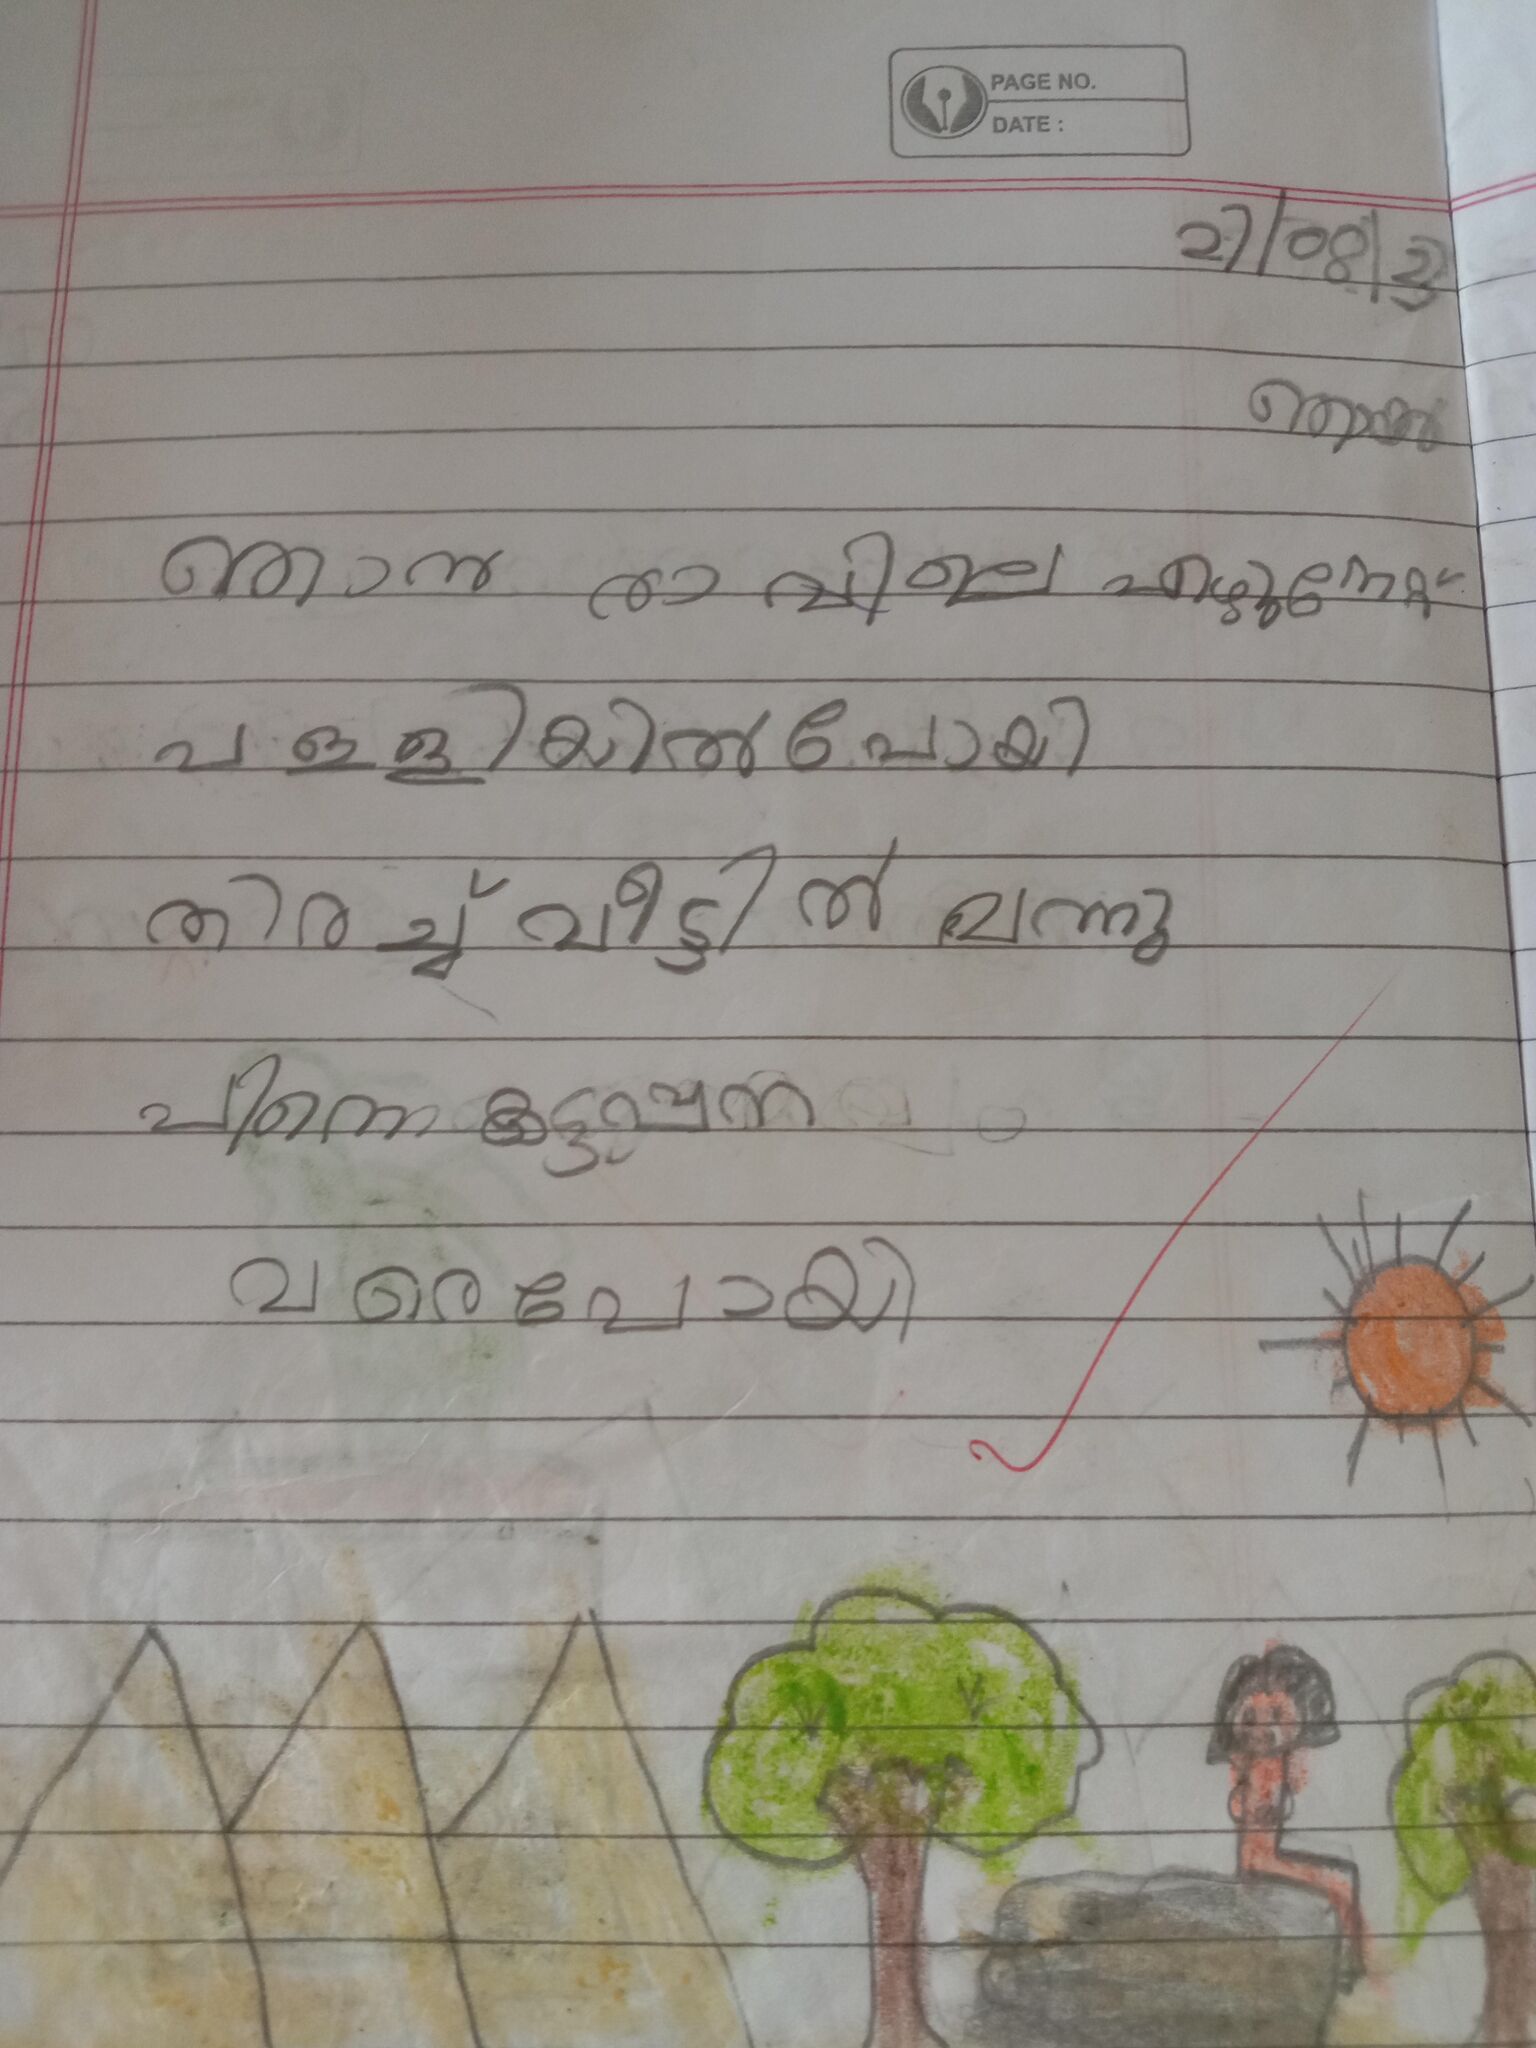 PAGE NO.
DATE :
27/08/23
ഞായർ
ഞാൻ രാവിലെ എഴുന്നേറ്റ്
പള്ളിയിൽ പോയി
തിരച്ച് വീട്ടിൽ വന്നു
പിന്നെ കട്ടപ്പന
വരെ പോയി